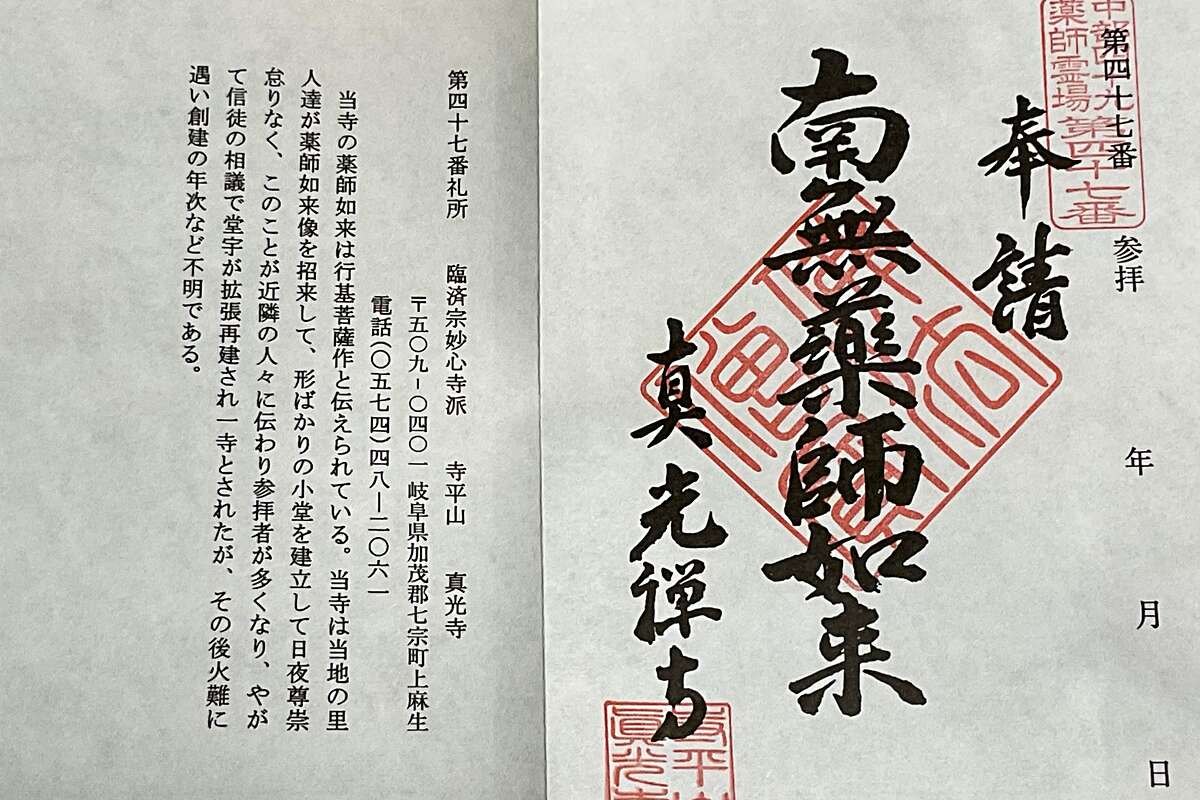 中部四十九
薬師霊場第四十七番
第四十七番 参拝 年 月 日
奉請
南無薬師如来
真光禅寺
寺平山
眞光寺
第四十七番礼所 臨済宗妙心寺派 寺平山 真光寺
〒五〇九-〇四〇一 岐阜県加茂郡七宗町上麻生
電話(〇五七四)四八―二〇六一
当寺の薬師如来は行基菩薩作と伝えられている。当寺は当地の里
人達が薬師如来像を招来して、形ばかりの小堂を建立して日夜尊崇
怠りなく、このことが近隣の人々に伝わり参拝者が多くなり、やが
て信徒の相議で堂宇が拡張再建され一寺とされたが、その後火難に
遇い創建の年次など不明である。